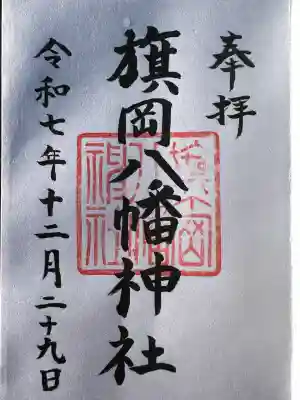 奉拝
旗岡八幡神社
令和七年十二月二十九日